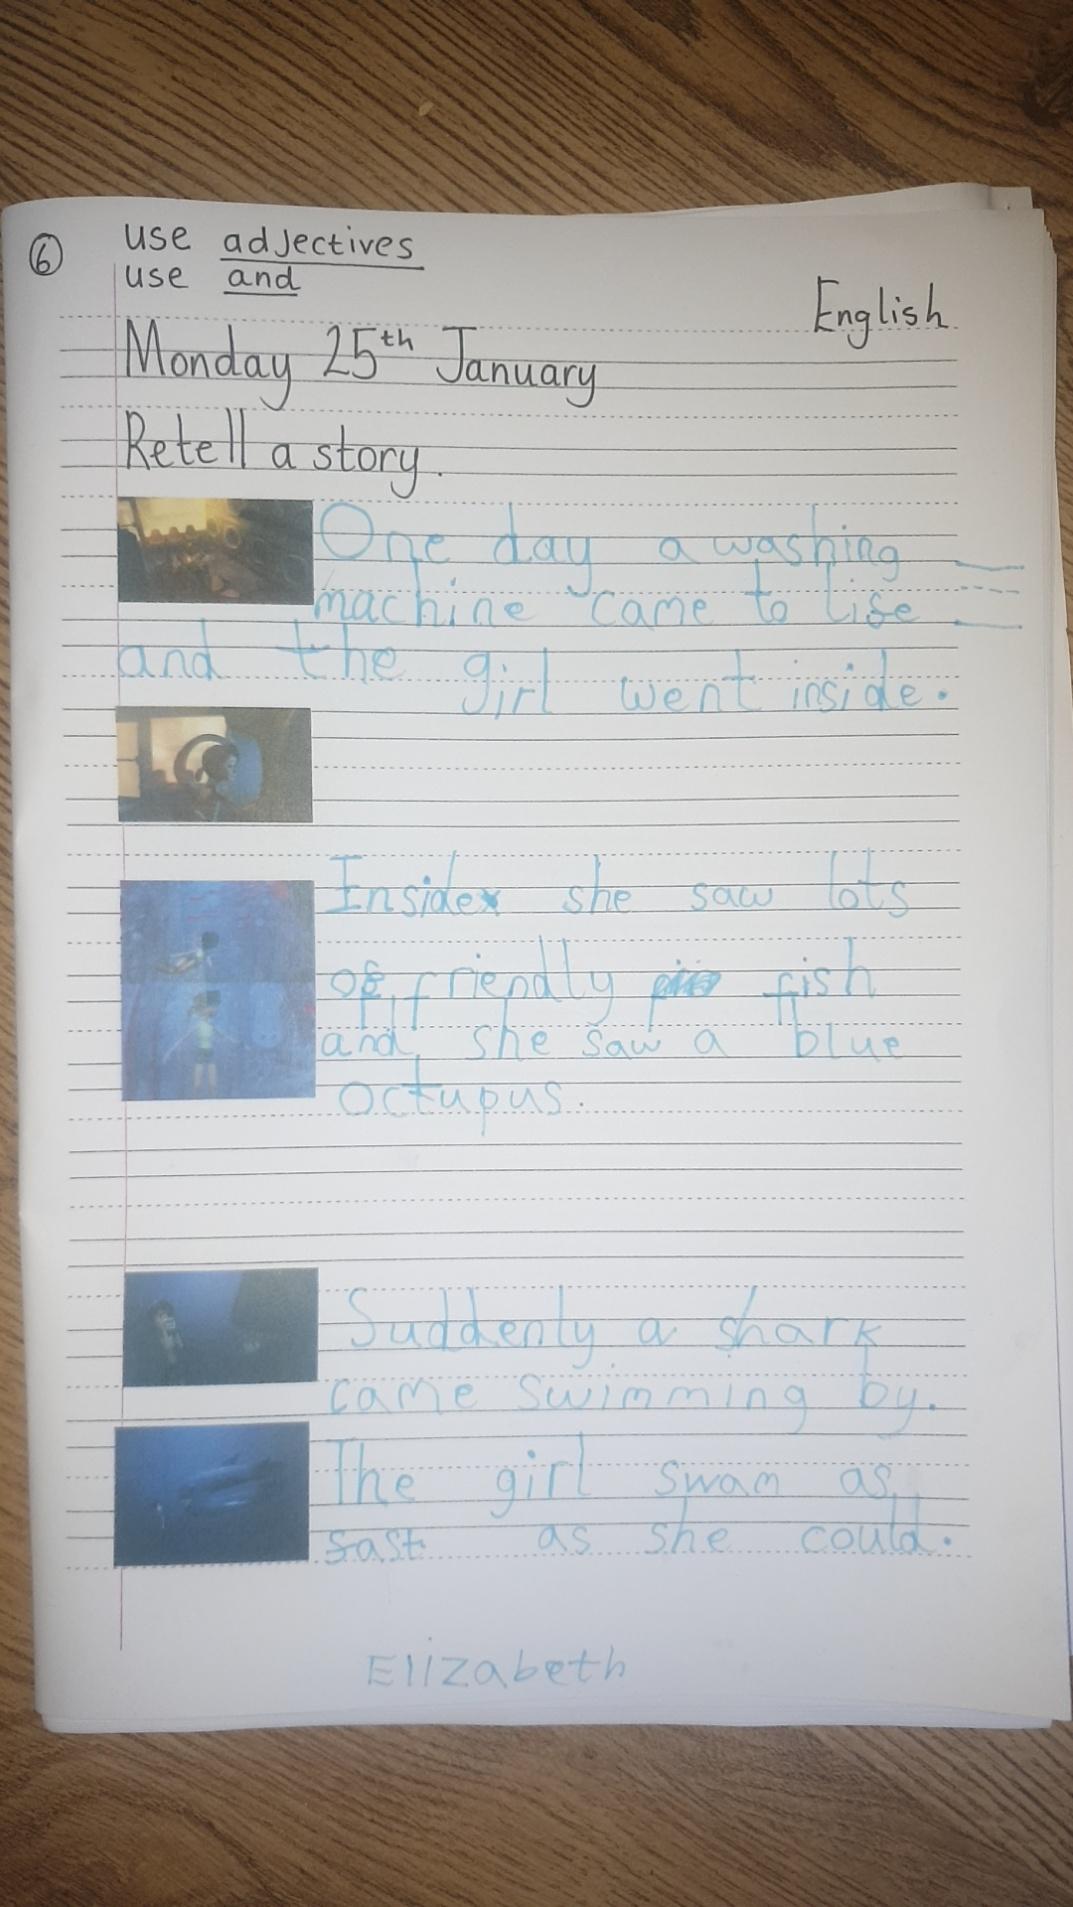 6
use adjectives
use and
English
Monday 25th January
Retell a story.
One day a washing
machine came to life
and the girl went inside.
Inside she saw lots
of friendly fish
and she saw a blue
octupus.
Suddenly a shark
came swimming by.
The girl swam as
fast as she could.
Elizabeth